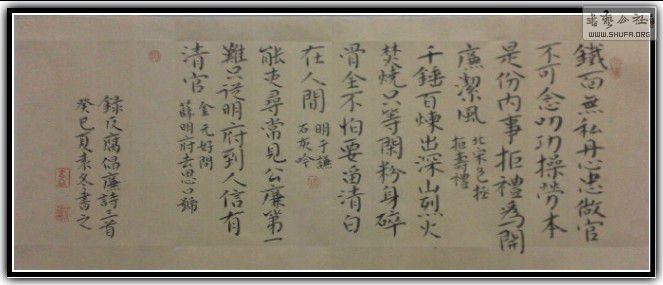 鐵面無私丹心忠做官
不可念叨功操勞本
是份內事拒禮為開
廉潔風
北宋包拯
拒壽禮
千錘百煉出深山烈火
焚燒只等閑粉身碎
骨全不怕要留清白
在人間
明于謙
石灰吟
能吏尋常見公廉第一
難只從明府到人信有
清官
金元好問
薛明府去思口號
錄反腐倡廉詩三首
癸巳夏素冬書之
書藝公社
WWW.SHUFA.ORG